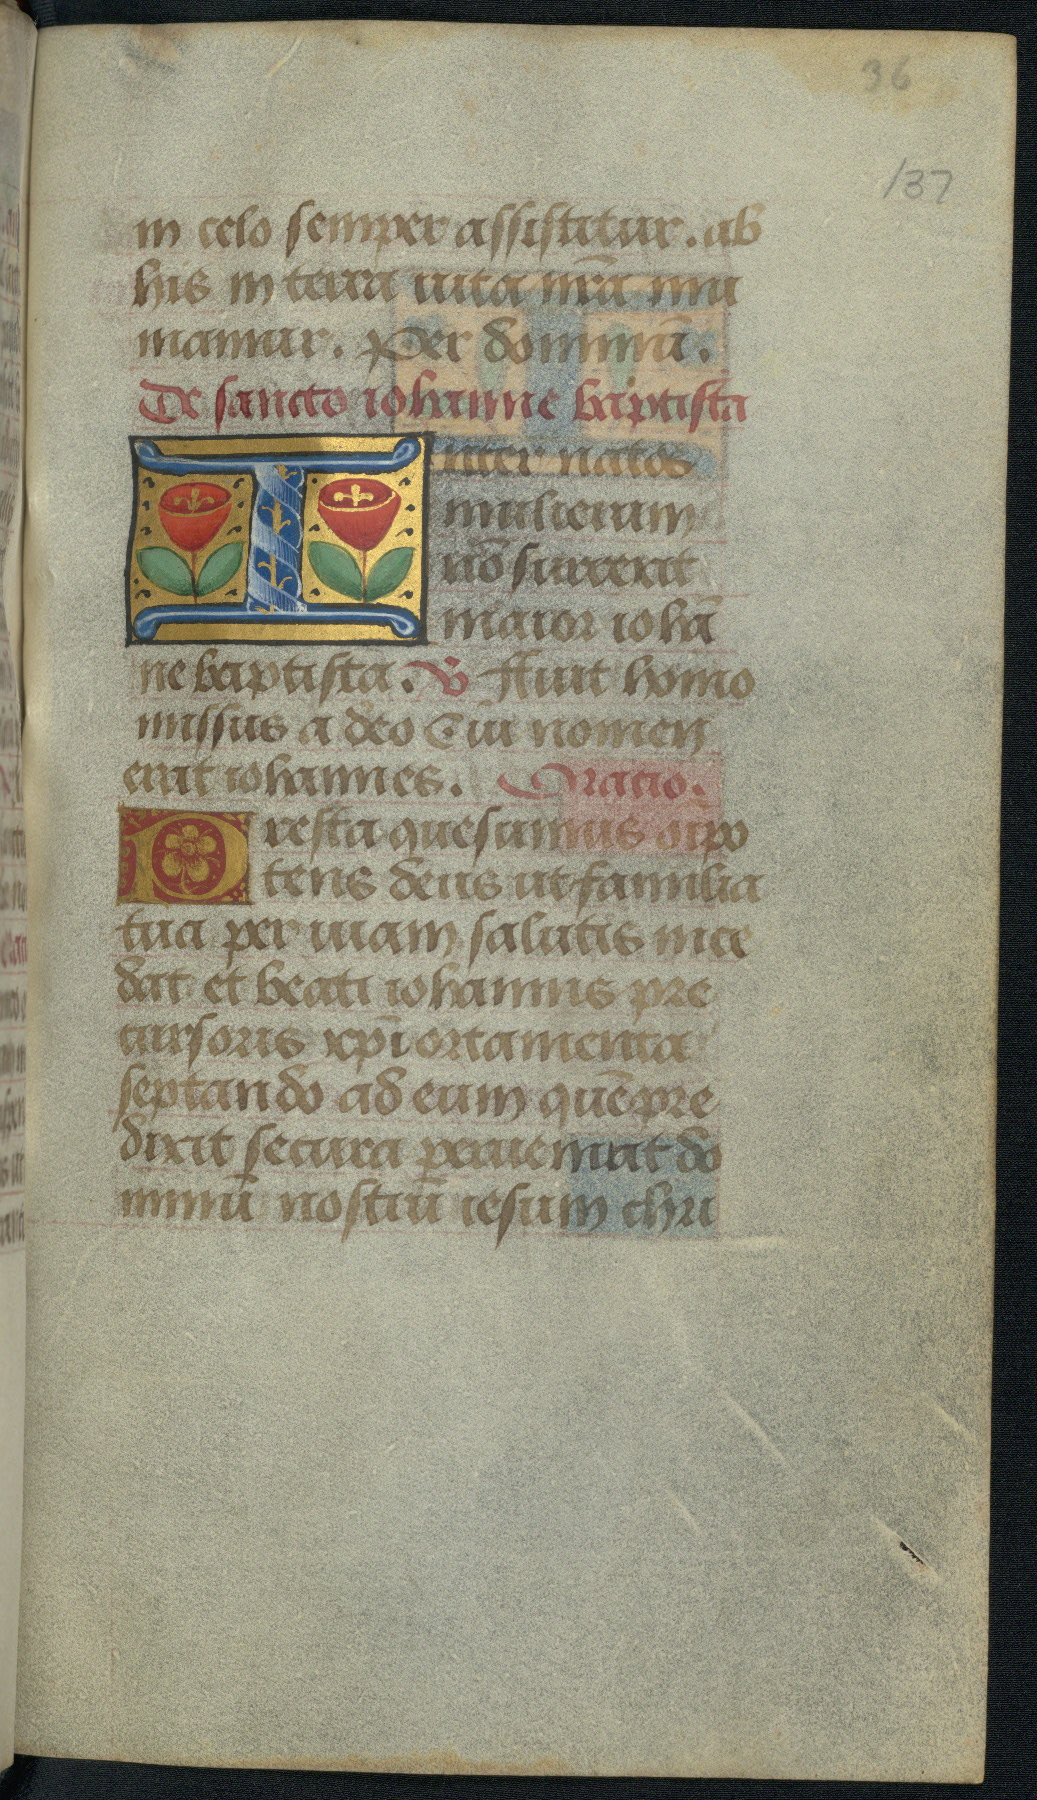 36
137
in celo semper assistitur. ab
his in terra uita nr̃a mu
niamur. Per dominũ.
De sancto iohanne baptista
Inter natos
mulierum
nõ surrexit
maior iohã
ne baptista. V̉ ffuit homo
missus a deo Cui nomen
erat iohannes. Oratio.
Presta quesumus oĩpo
tens deus ut familia
tua per uiam salutis ince
dat et beati iohannis pre
cursoris xp̃i ortamenta
septando ad eum quẽ pre
dixit secura perueniat do
minũ nostrũ iesum chri